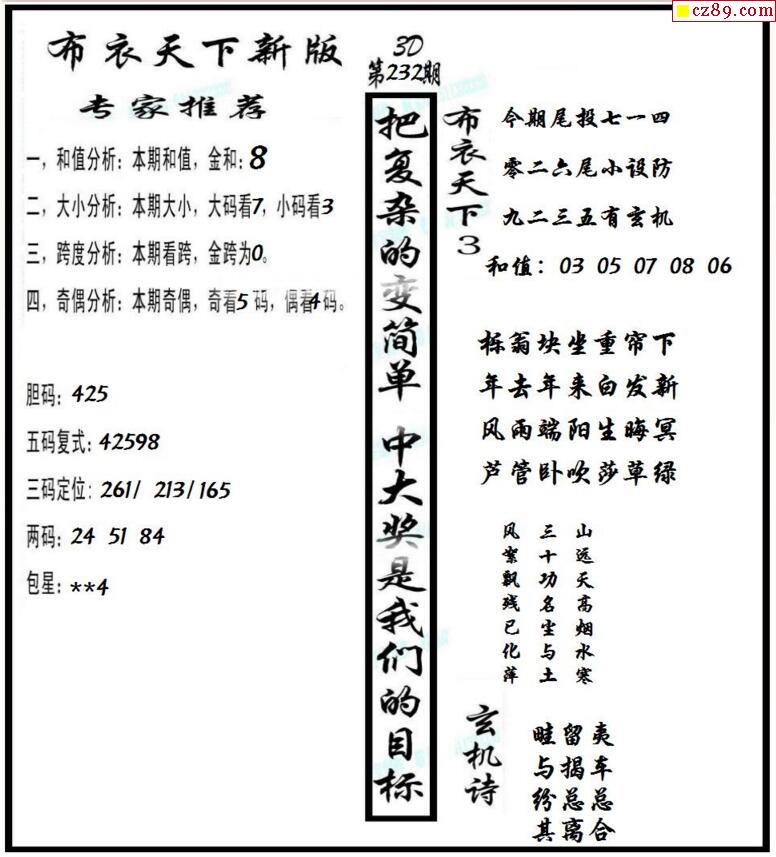 cz89.com
布衣天下新版
专家推荐
一，和值分析：本期和值，金和：8
二，大小分析：本期大小，大码看7，小码看3
三，跨度分析：本期看跨，金跨为0。
四，奇偶分析：本期奇偶，奇看5码，偶看4码。
胆码：425
五码复式：42598
三码定位：261/ 213/165
两码：24 51 84
包星：**4
3D
第232期
把复杂的变简单 中大奖是我们的目标
布衣天下3
今期尾投七一四
零二六尾小设防
九二三五有玄机
和值：03 05 07 08 06
栎翁块坐重帘下
年去年来白发新
风雨端阳生晦冥
芦管卧吹莎草绿
风 三 山
絮 十 远
飘 功 天
残 名 高
已 尘 烟
化 与 水
萍 土 寒
玄机诗
畦留夷
与揭车
纷总总
其离合